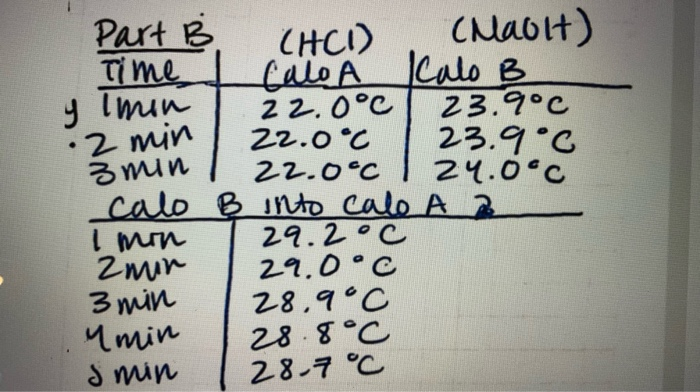 Part B (HCl) (NaOH)
Time Calo A Calo B
y 1 min 22.0°C 23.9°C
. 2 min 22.0°C 23.9°C
3 min 22.0°C 24.0°C
Calo B into Calo A
1 min 29.2°C
2 min 29.0°C
3 min 28.9°C
. 4 min 28.8°C
5 min 28.7°C